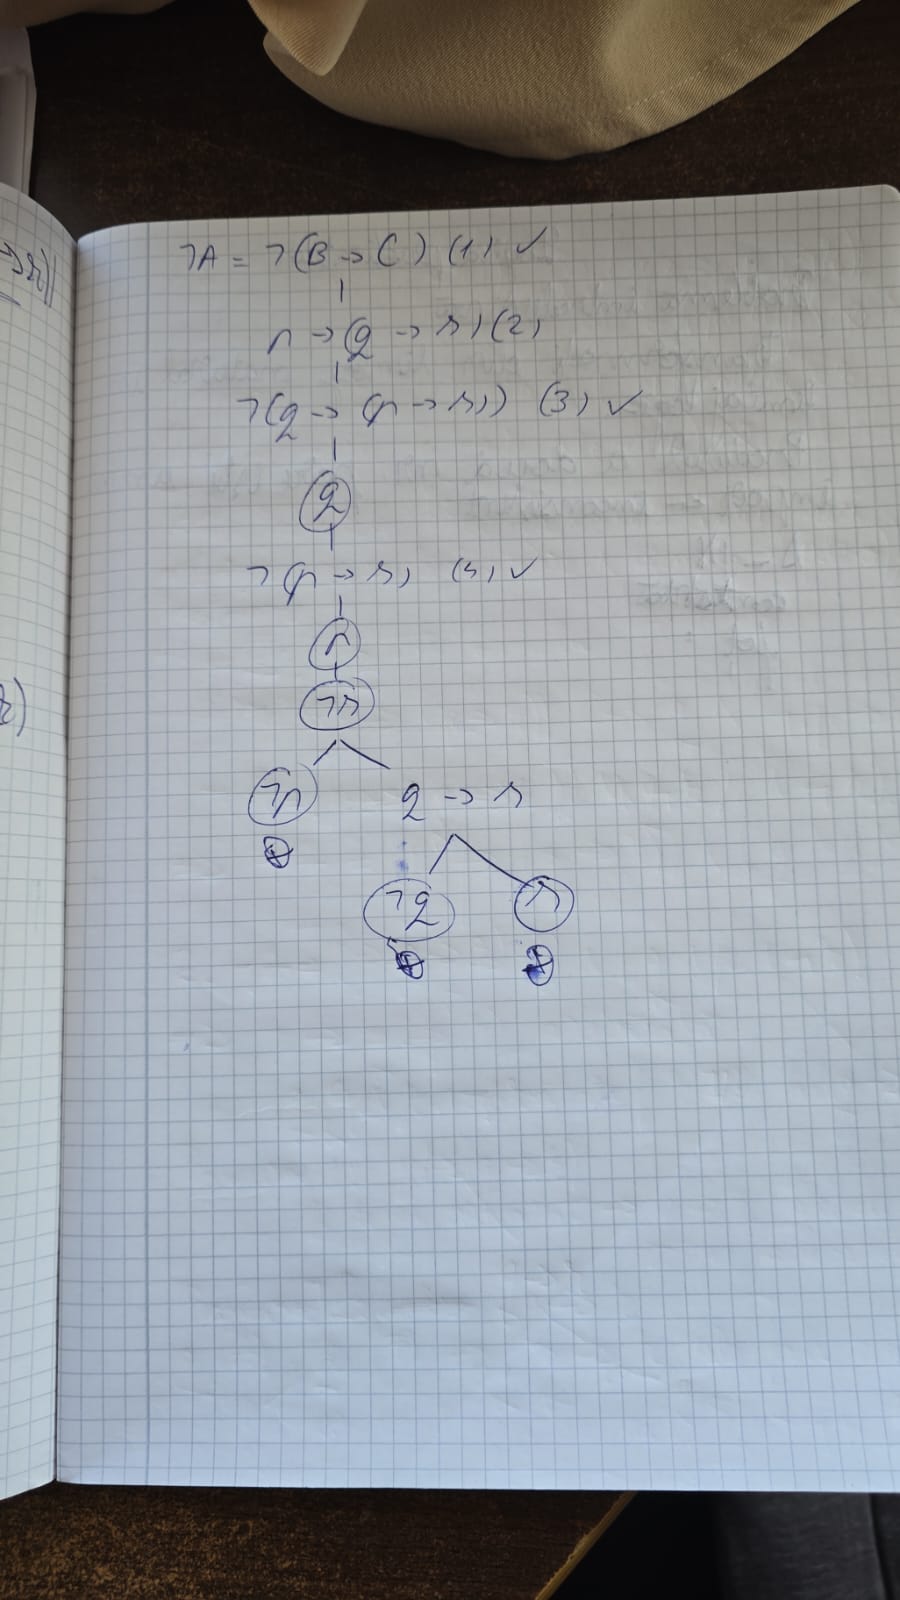 ¬A = ¬(B → C) (1) ✓
p → (q → r) (2)
¬(q → (p → r)) (3) ✓
q
¬(p → r) (4) ✓
p
¬r
¬p q → r
⊗
¬q r
⊗ ⊗